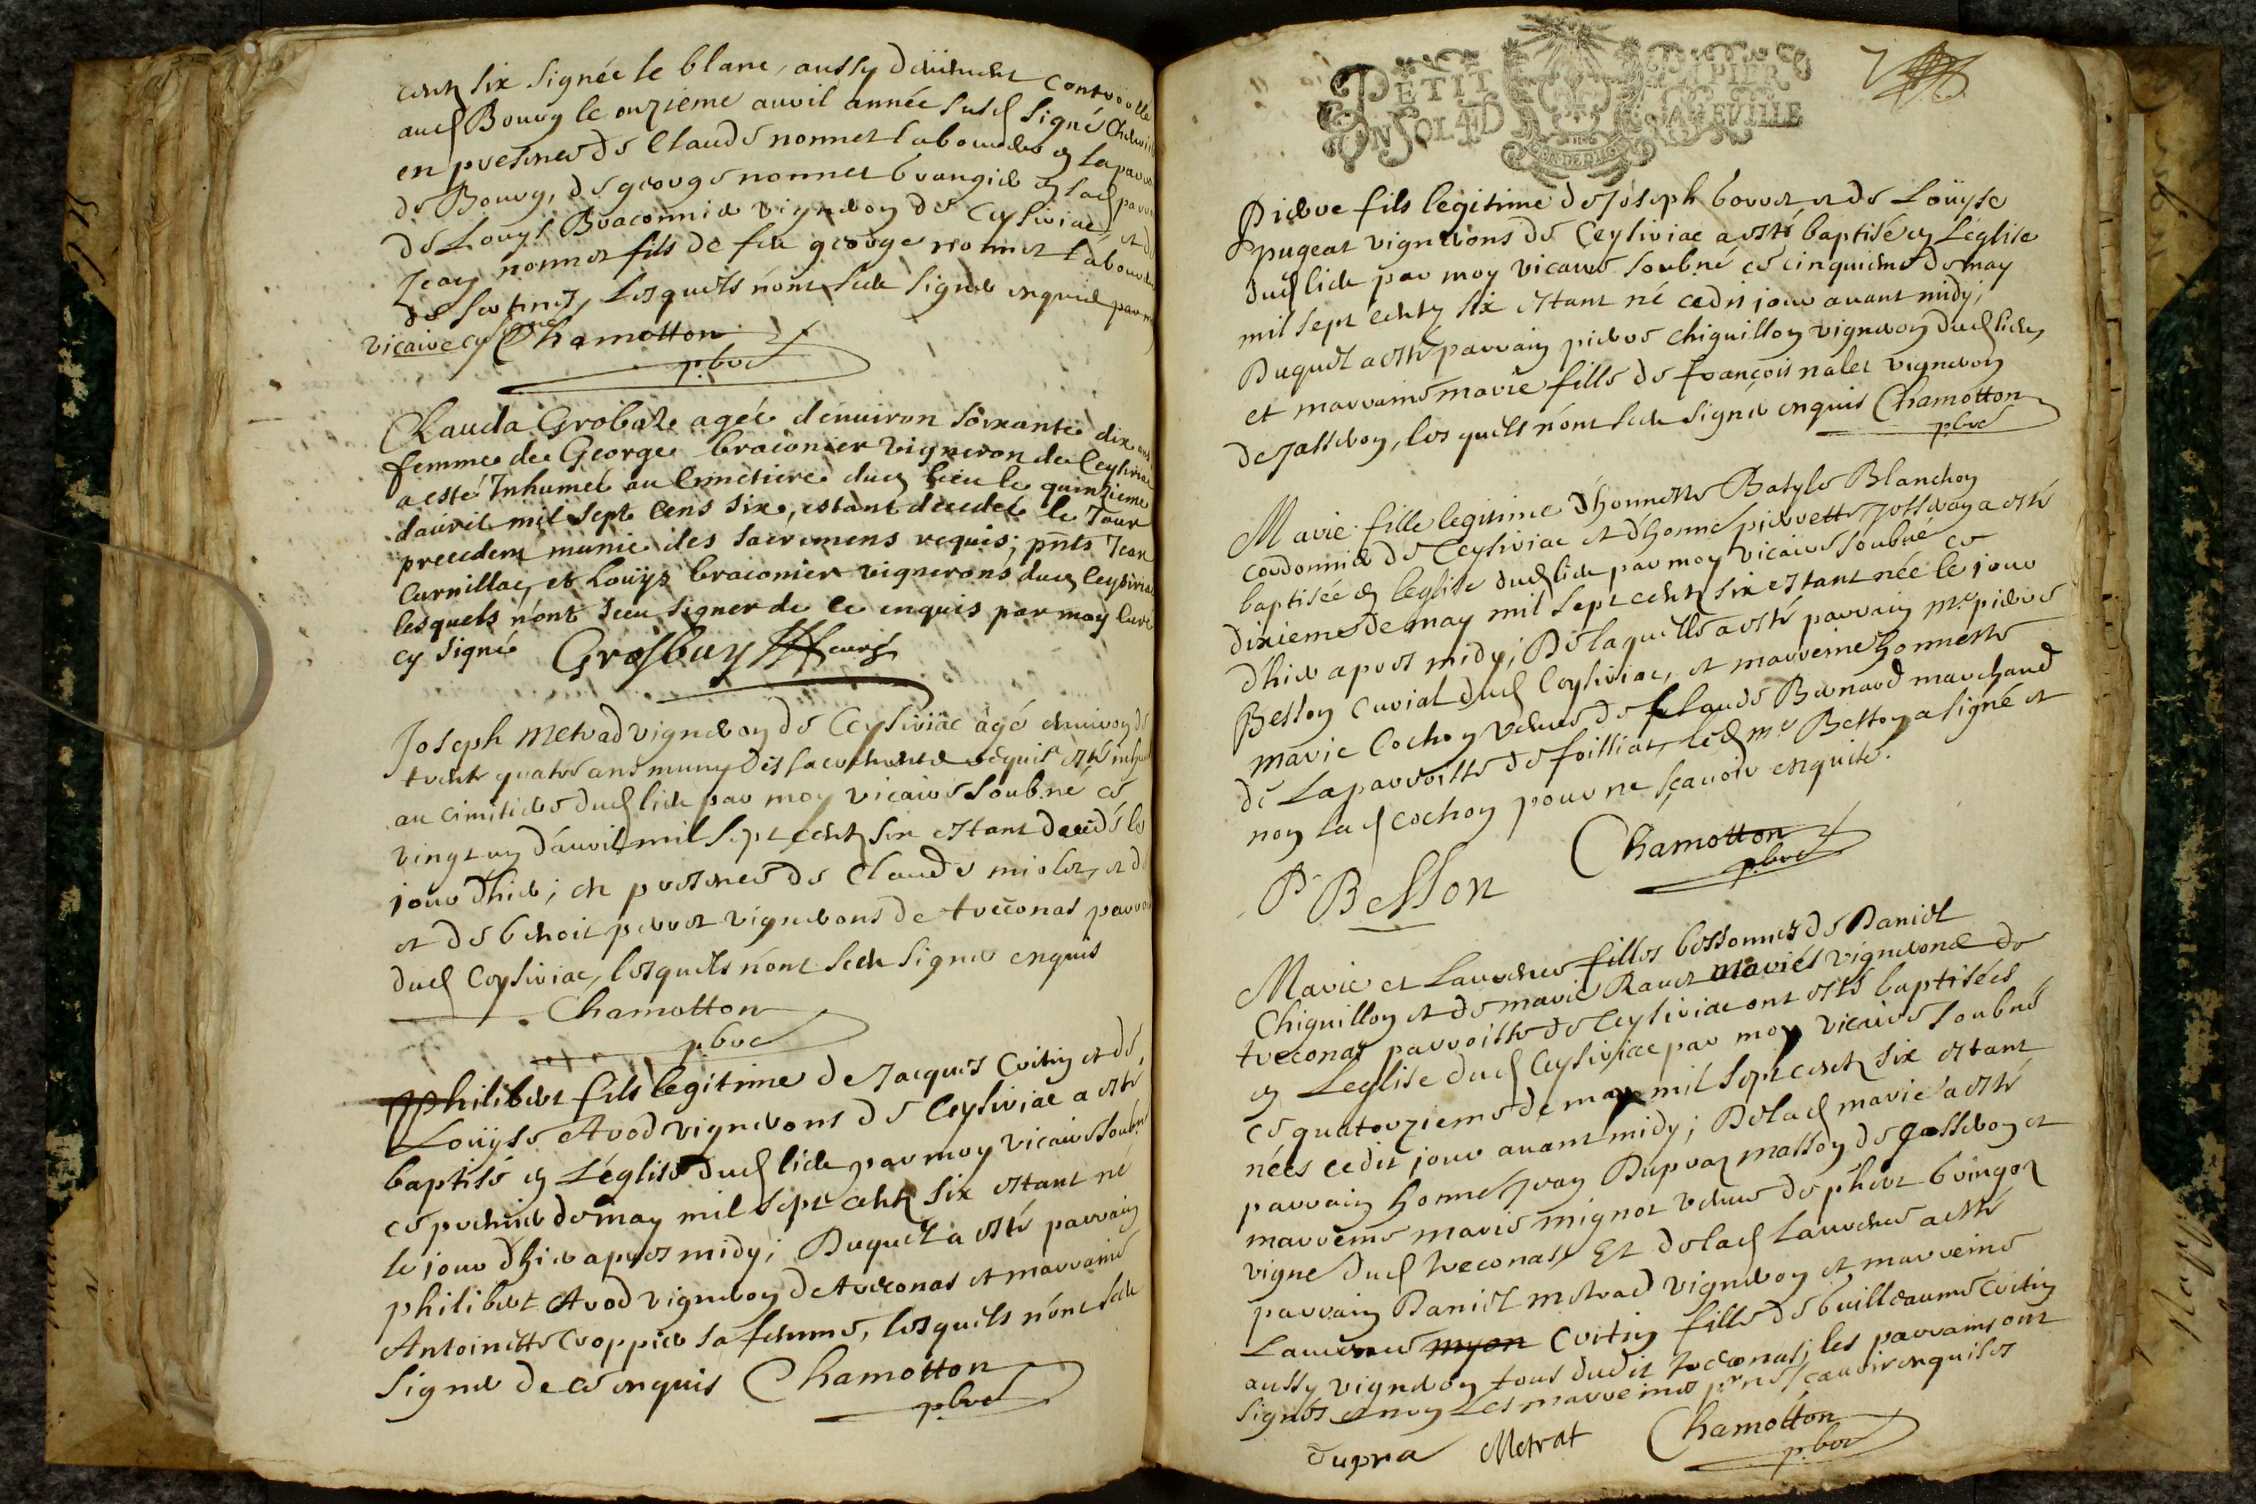 cents six signée le blanc, aussy deüement controolle
aud Bourg le onzieme auril année susd signé
en presence de Claude nonnet laboureur en la parr
de Bourg, de george nonnet Grangier en lad parr
de Louys Braconnier vigneron de Ceysiriac, et de
Jean nonnet fils de feu george nonnet laboureur
de lesquels n'ont sceu signer enquis par moy
vicaire cy signé Chamotton
pbre
Clauda Grobaz agée d'enuiron soixante dix ans
femme de George braconier vigneron de Ceysiria
a esté Inhumée au Cimetiere dud lieu le quinzieme
d'auril mil sept cens six, estant decedée le Jour
precedent munie des sacremens requis; pnts Jean
Curnillac, et Loüys braconier vignerons dud Ceysiria
lesquels n'ont sceu signer de ce enquis par moy Curé
cy signé Grosbuy curé
Joseph Metrad vigneron de Ceysiriac âgé enuiron de
trente quatre ans muny des sacrements requis a esté inhumé
au cimitiere dud lieu par moy vicaire soub.né ce
vingt un d'auril mil sept cents six estant decedé le
jour d'hier; en presence de Claude miolet, et de
et de benoit perret vignerons de treconas parroi
dud Ceysiriac, lesquels n'ont sceu signer enquis
Chamotton
pbre
Philibert fils legitime de Jacques Croitin et de
Loüyse Avod vignerons de Ceysiriac a esté
baptisé en L'église dud lieu par moy vicaire soubné
ce premier de may mil sept cents six estant né
le jour d'hier apres midy; Duquel a esté parrain
philibert Avod vigneron de treconas et marraine
Antoinette Croppier sa femme, lesquels n'ont sceu
signer de ce enquis Chamotton
pbre
PETIT PAPIER
UN SOL 4 D LA FEUILLE
Pierre fils legitime de Joseph borret et de Loüyse
pugeat vignerons de Ceysiriac a esté baptisé en L'église
dud lieu par moy vicaire soub.né ce cinquieme de may
mil sept cents six estant né cedit jour auant midy;
Duquel a esté parrain pierre Chiguillon vigneron dud lieu,
et marraine marie fille de françois nalet vigneron
de Jasseron, les quels n'ont sceu signer enquis Chamotton
pbre
Marie fille legitime d'honneste Batyle Blanchon
cordonnier de Ceysiriac et d'honne pierrette Josseran a esté
baptisée en leglise dud lieu par moy vicaire soubné ce
dixieme de may mil sept cents six estant née le jour
d'hier apres midy; De laquelle a esté parrain me pierre
Besson Curial dud Ceysiriac, et marreine honneste
marie Cochon veuue de Claude Bernard marchand
de La parroisse de foilliat, led me Besson a signé et
non lad cochon pour ne sçauoir enquise.
Chamotton
pbre
P Besson
Marie et Laurence filles bessonnes de Daniel
Chiguillon et de marie Rauet mariés vignerons de
treconas parroisse de Ceysiriac ont esté baptisées
en Leglise dud Ceysiriac par moy vicaire soubné
ce quatorzieme de may mil sept cents six estant
nées cedit jour auant midy; De lad marie a esté
parrain honne Jean Dupraz masson de Jasseron et
marreine marie mignot veuue de phibert bringoz
vigne dud treconas, Et de lad Laurence a esté
parrain Daniel metrad vigneron et marreine
Laurence myon Croitin fille de Guilleaume Croitin
aussy vigneron tous dudit treconas; les parrains ont
signés et non Les marreines pr ne sçauoir enquises
Chamotton
pbre
dupra Metrat